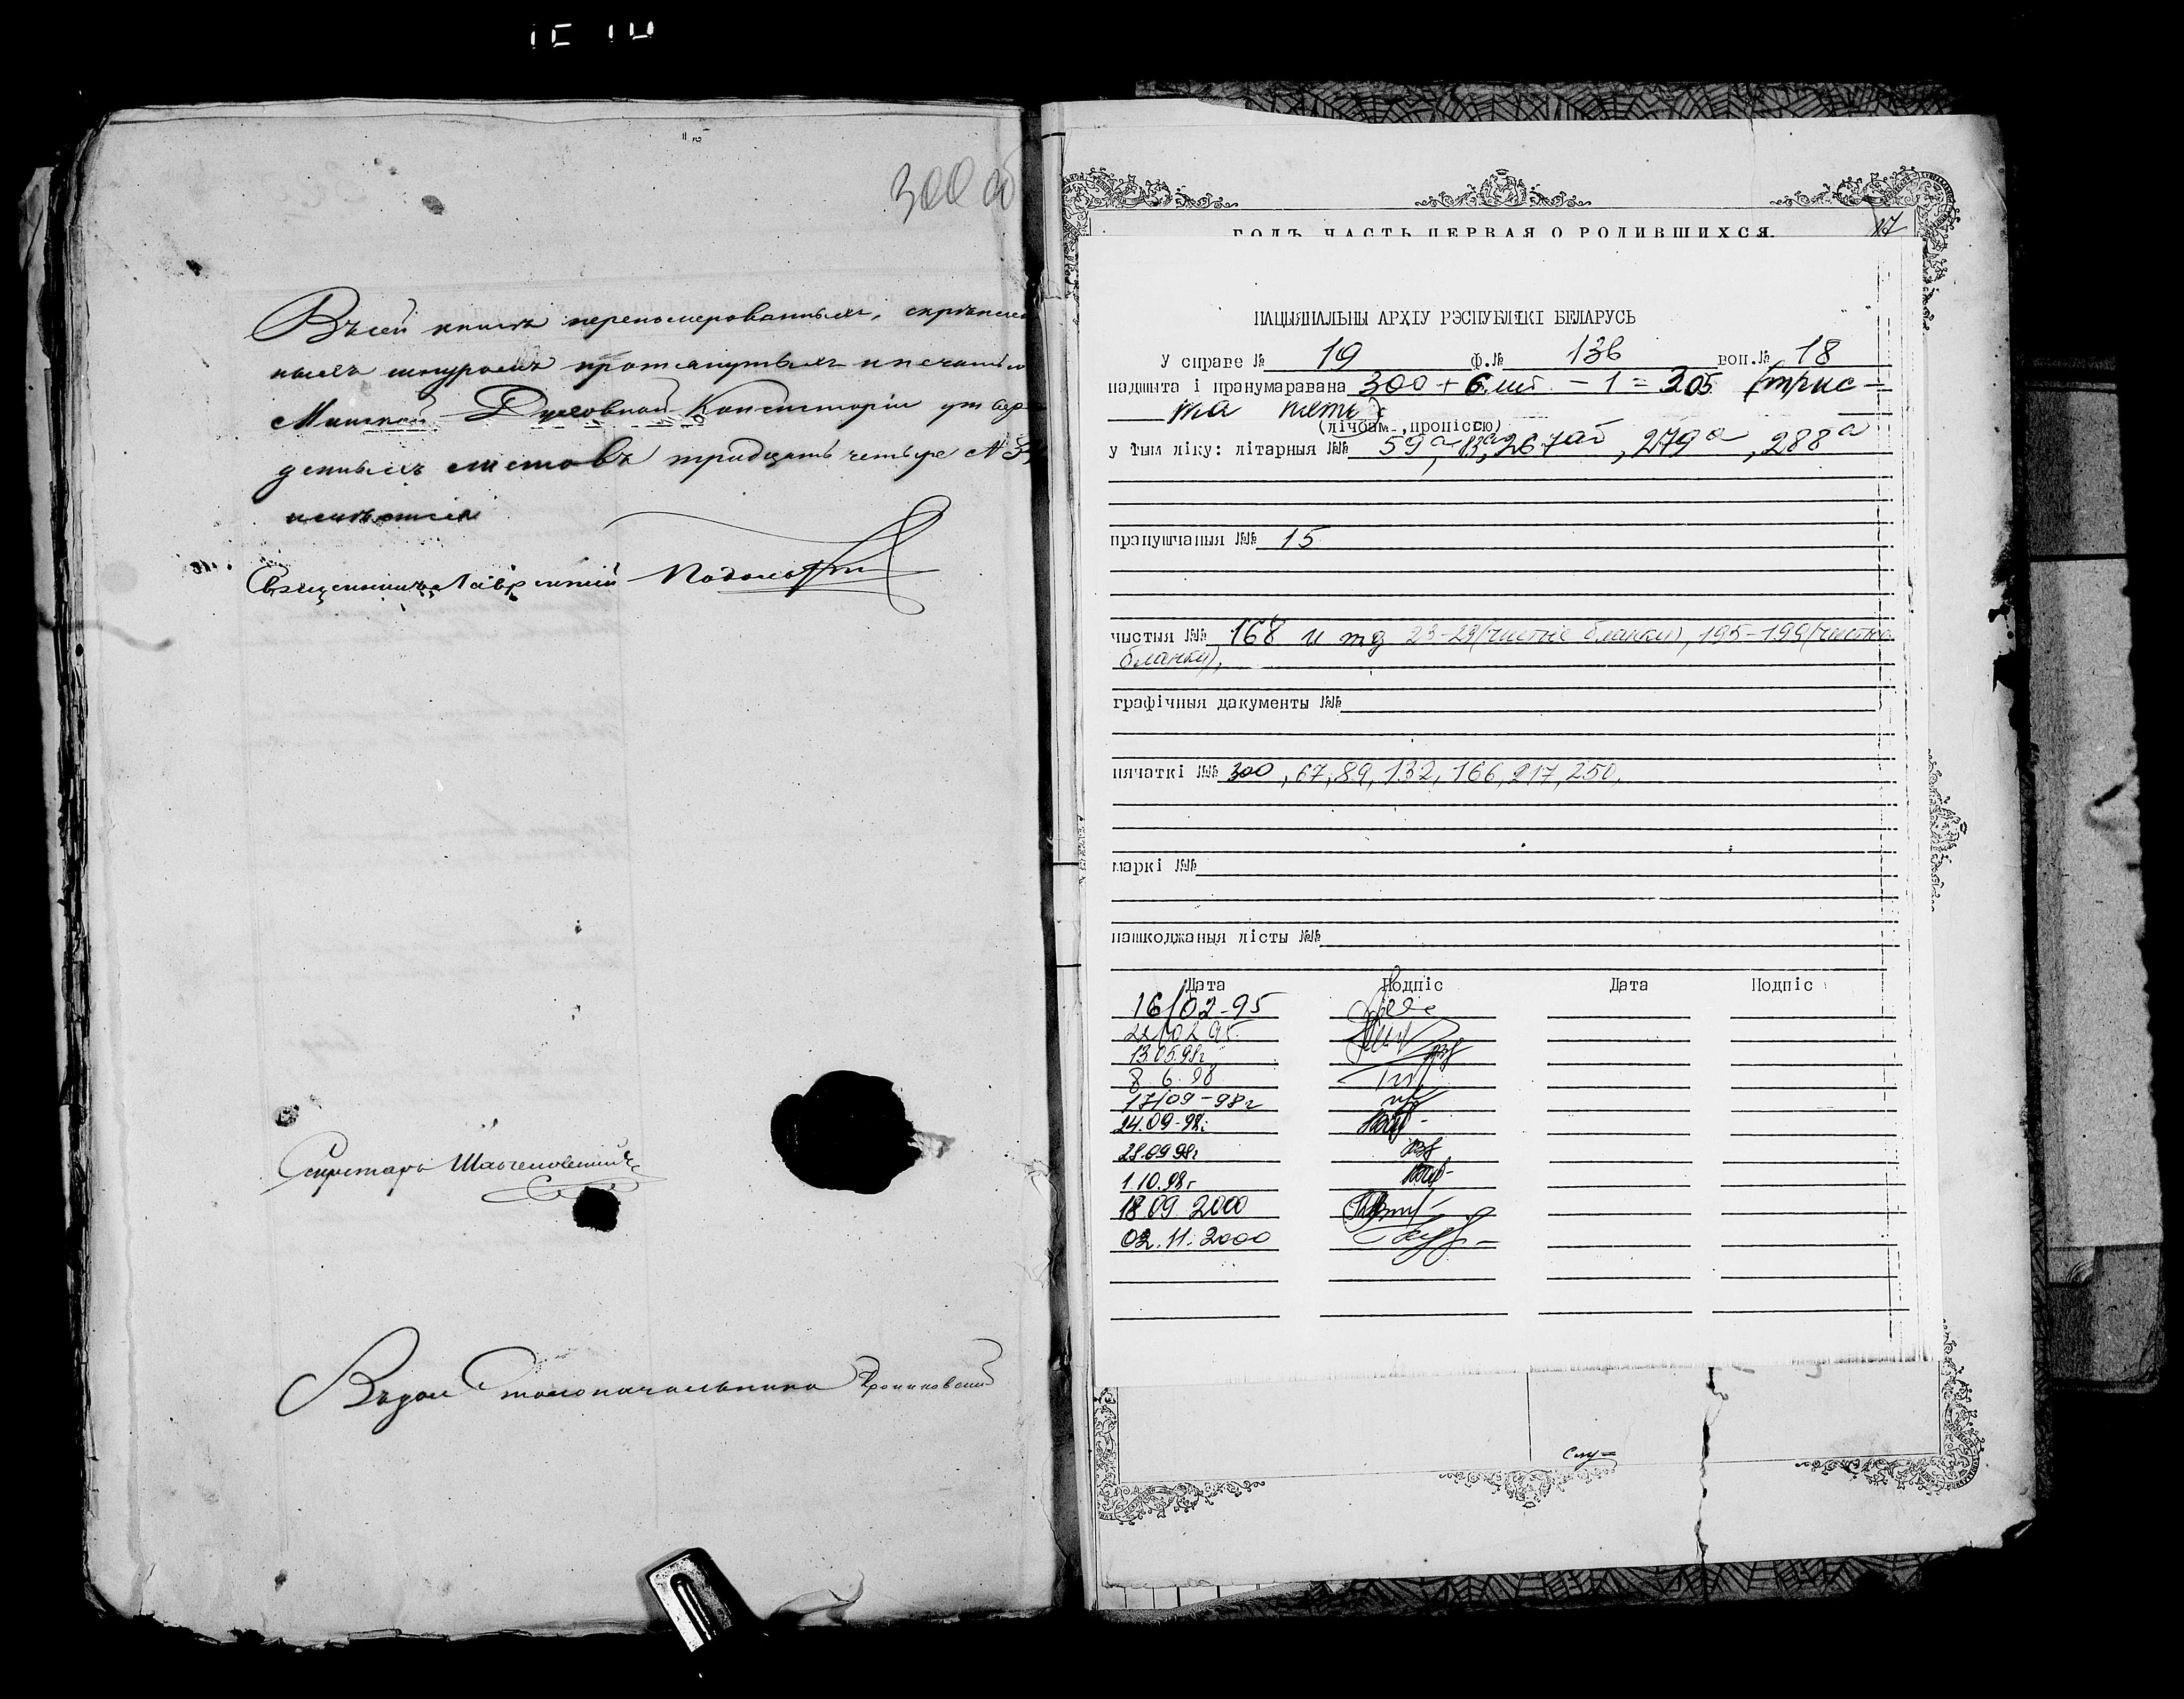 300 об
Въ сей книгѣ перенумерованныхъ, скрѣплен
ныхъ шнуромъ протянутыхъ и печатью
Минской Духовной Консисторіи утвер
денныхъ листовъ тридцать четыре № 34
Священникъ Лаврентій
Секретарь
Въ дол Столоначальника
ГОДЪ ЧАСТЬ ПЕРВАЯ О РОДИВШИХСЯ.
17
НАЦЫЯНАЛЬНЫ АРХІУ РЭСПУБЛІКІ БЕЛАРУСЬ
У справе № 19 ф.№ 136 воп.№ 18
падшыта і пранумаравана 300 + 6 лит. - 1 = 305 (трис-
та пять)
(лічбам ,пропіссю)
у тым ліку: літарныя №№ 59а, 83а, 267аб, 279а, 288а
прапушчаныя №№ 15
чыстыя №№ 168 и тд 23-29 (чистые бланки), 195-199 (чистые
бланки),
графічныя дакументы №№
пячаткі №№ 300, 67, 89, 132, 166, 217, 250,
маркі №№
пашкоджаныя лісты №№
Дата Подпіс Дата Подпіс
16/02-95
22/02 95.
13.05.98г
8. 6. 98
17/09-98г
24.09-98г
28.09 98г
1.10.98г
18.09. 2000
02. 11. 2000